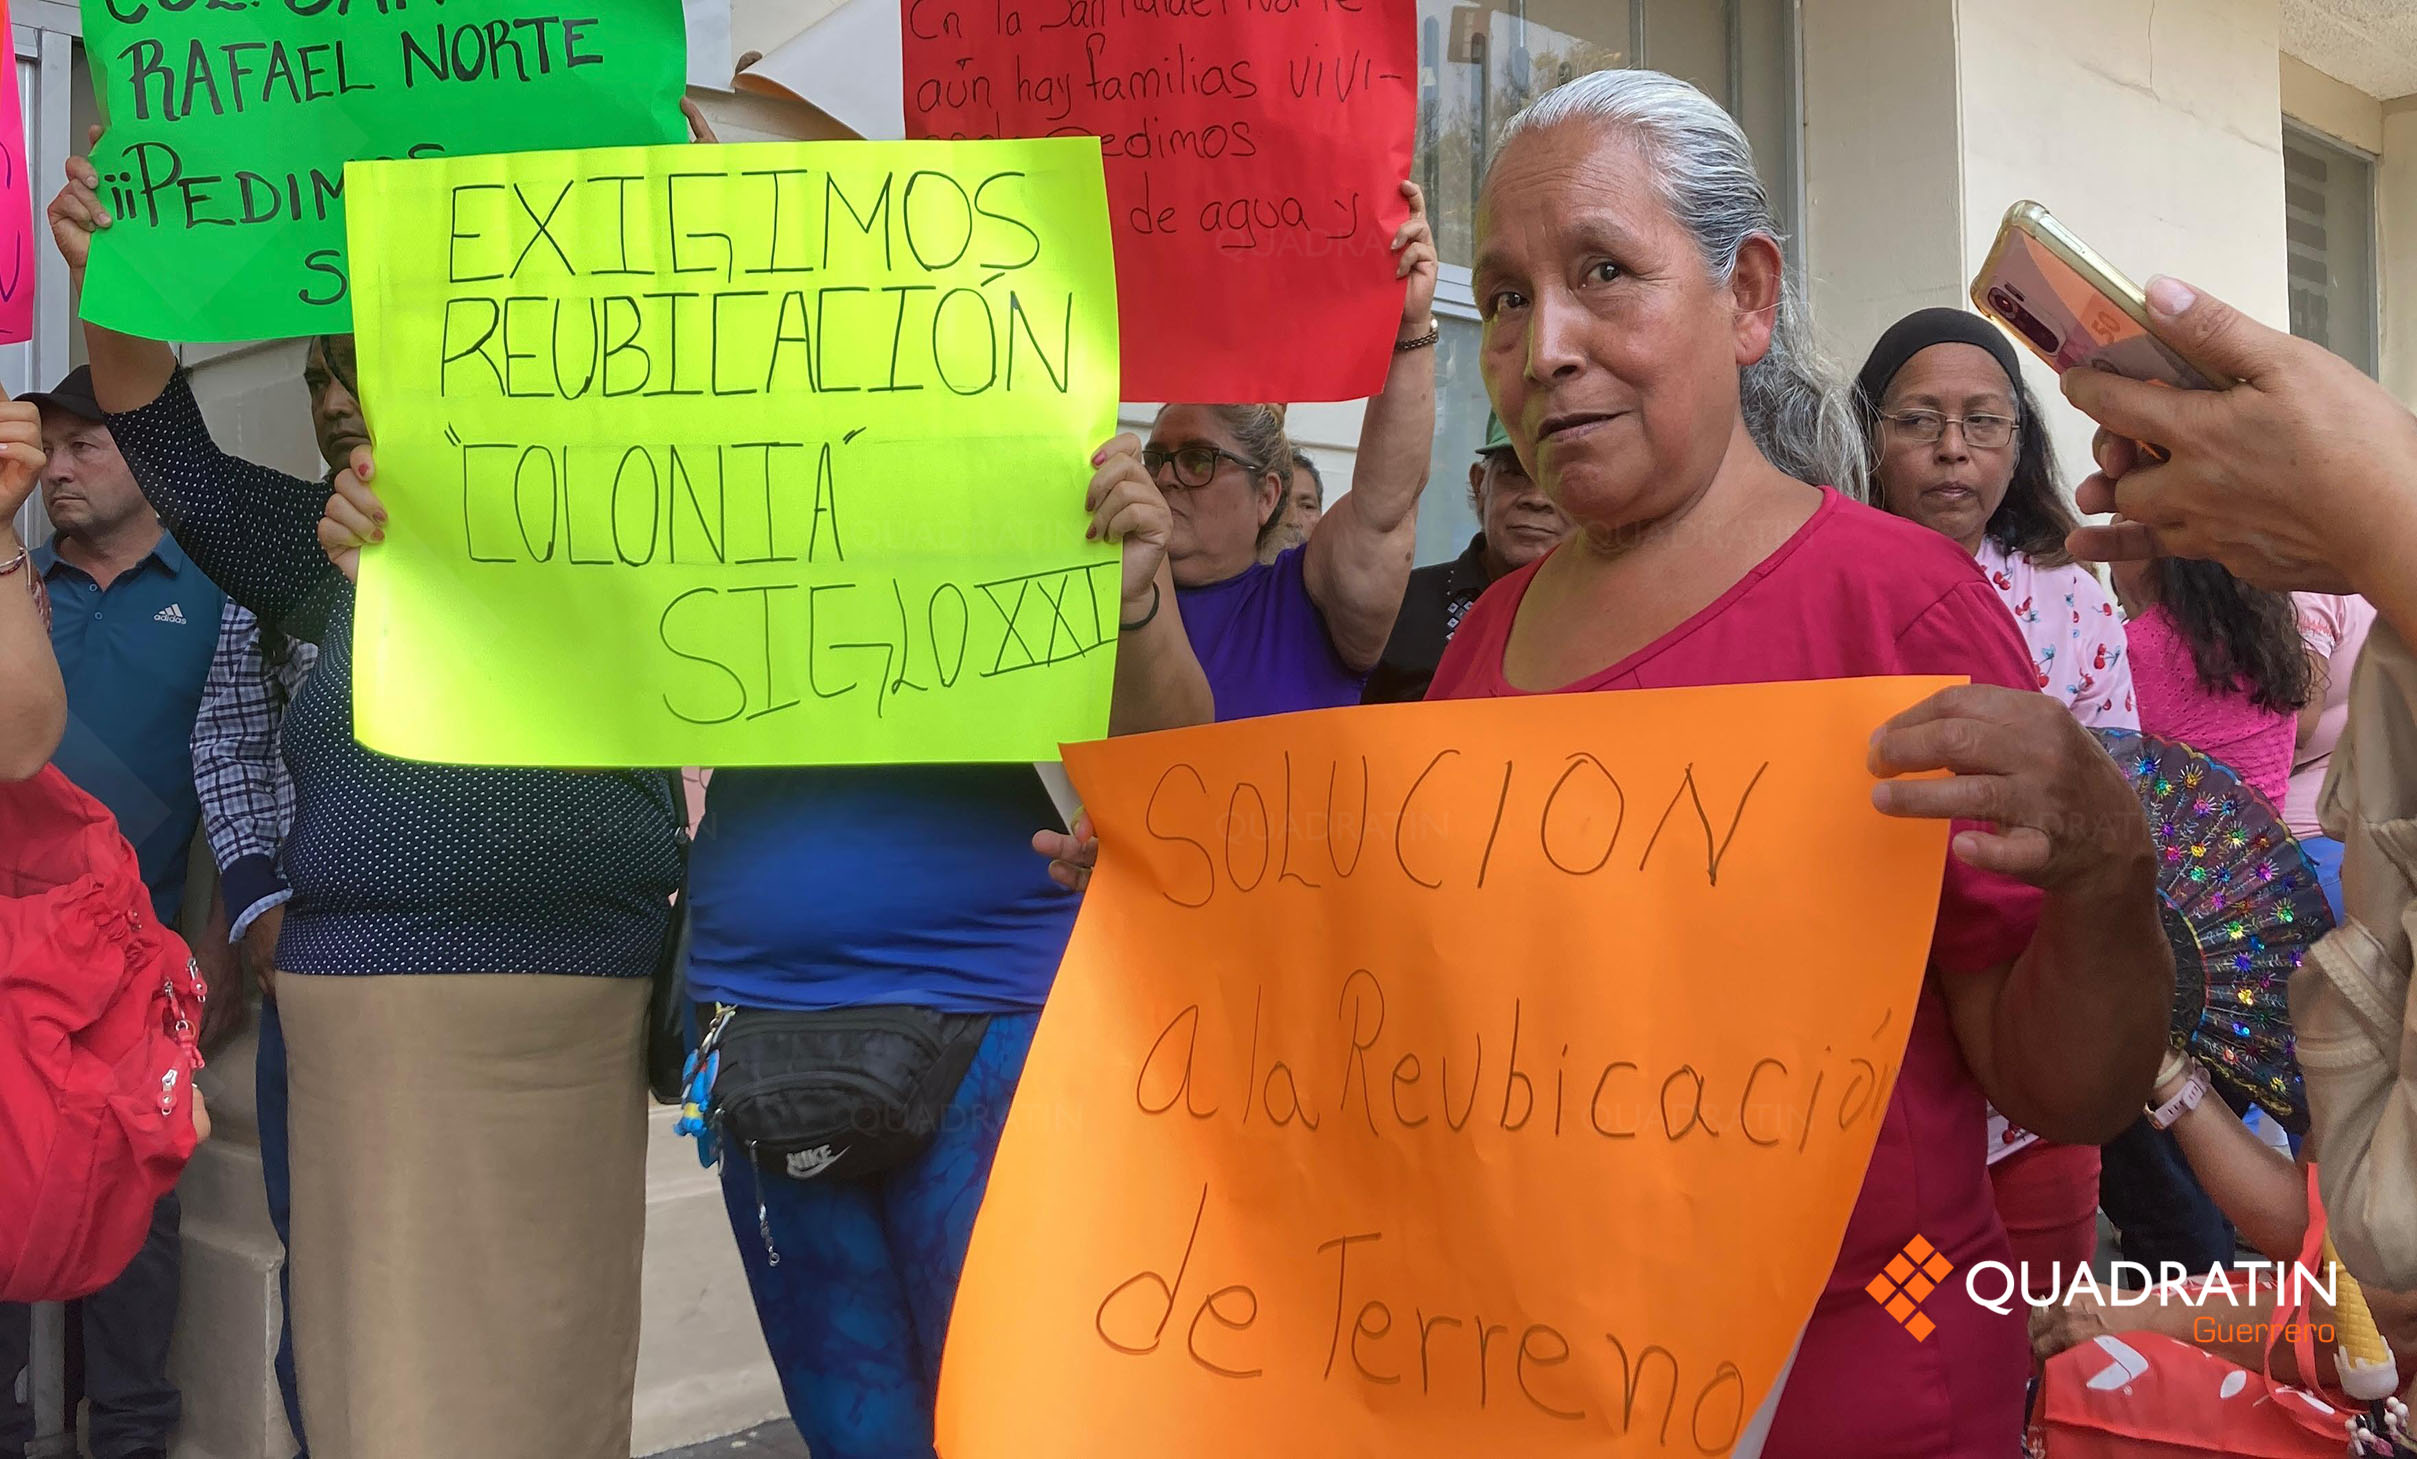 RAFAEL NORTE
¡¡PEDIM
S
En la San Rafael Norte
aún hay familias VIVI-
edimos
de agua y
EXIGIMOS
REUBICACIÓN
"COLONIA"
SIGLO XXI
SOLUCION
a la Reubicación
de Terreno
adidas
NIKE
50
QUADRATIN
Guerrero